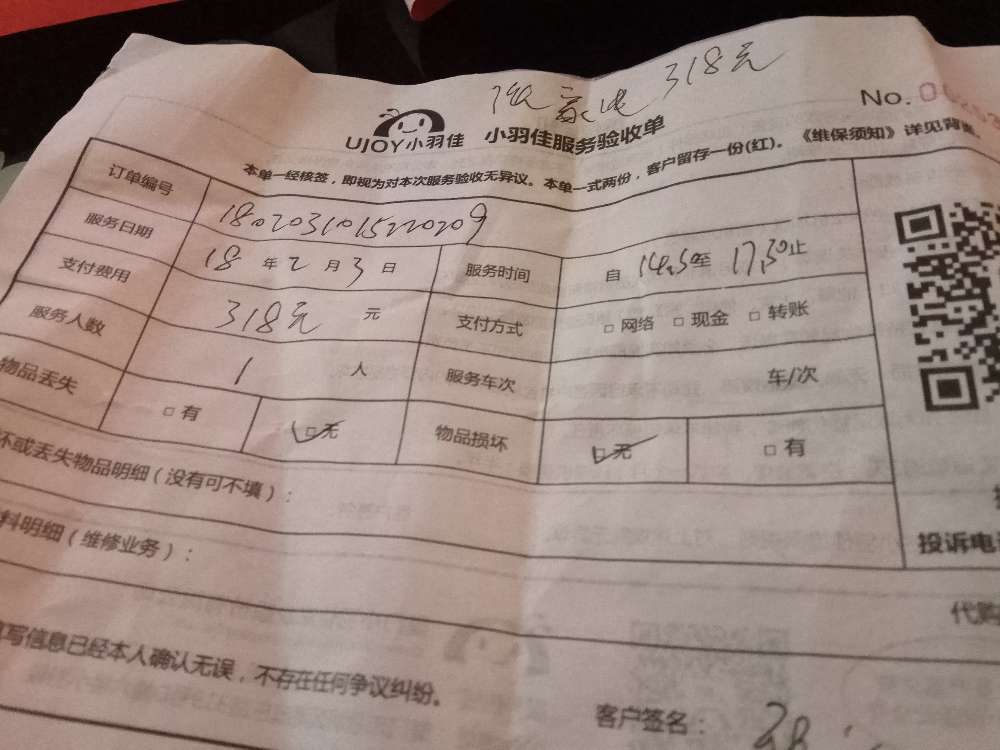 318元
No. 0
UJOY小羽佳 小羽佳服务验收单
本单一经核签，即视为对本次服务验收无异议。本单一式两份，客户留存一份(红)。《维保须知》详见背面
订单编号
服务日期 18 年 2 月 3 日 服务时间 自 14.30至 17.30止
支付费用 318元 元 支付方式 □ 网络 □ 现金 □ 转账
服务人数 1 人 服务车次 车/次
物品丢失 □ 有 □ 无 物品损坏 □ 无 □ 有
坏或丢失物品明细（没有可不填）：
料明细（维修业务）：
投诉电
代购
填写信息已经本人确认无误，不存在任何争议纠纷。
客户签名：